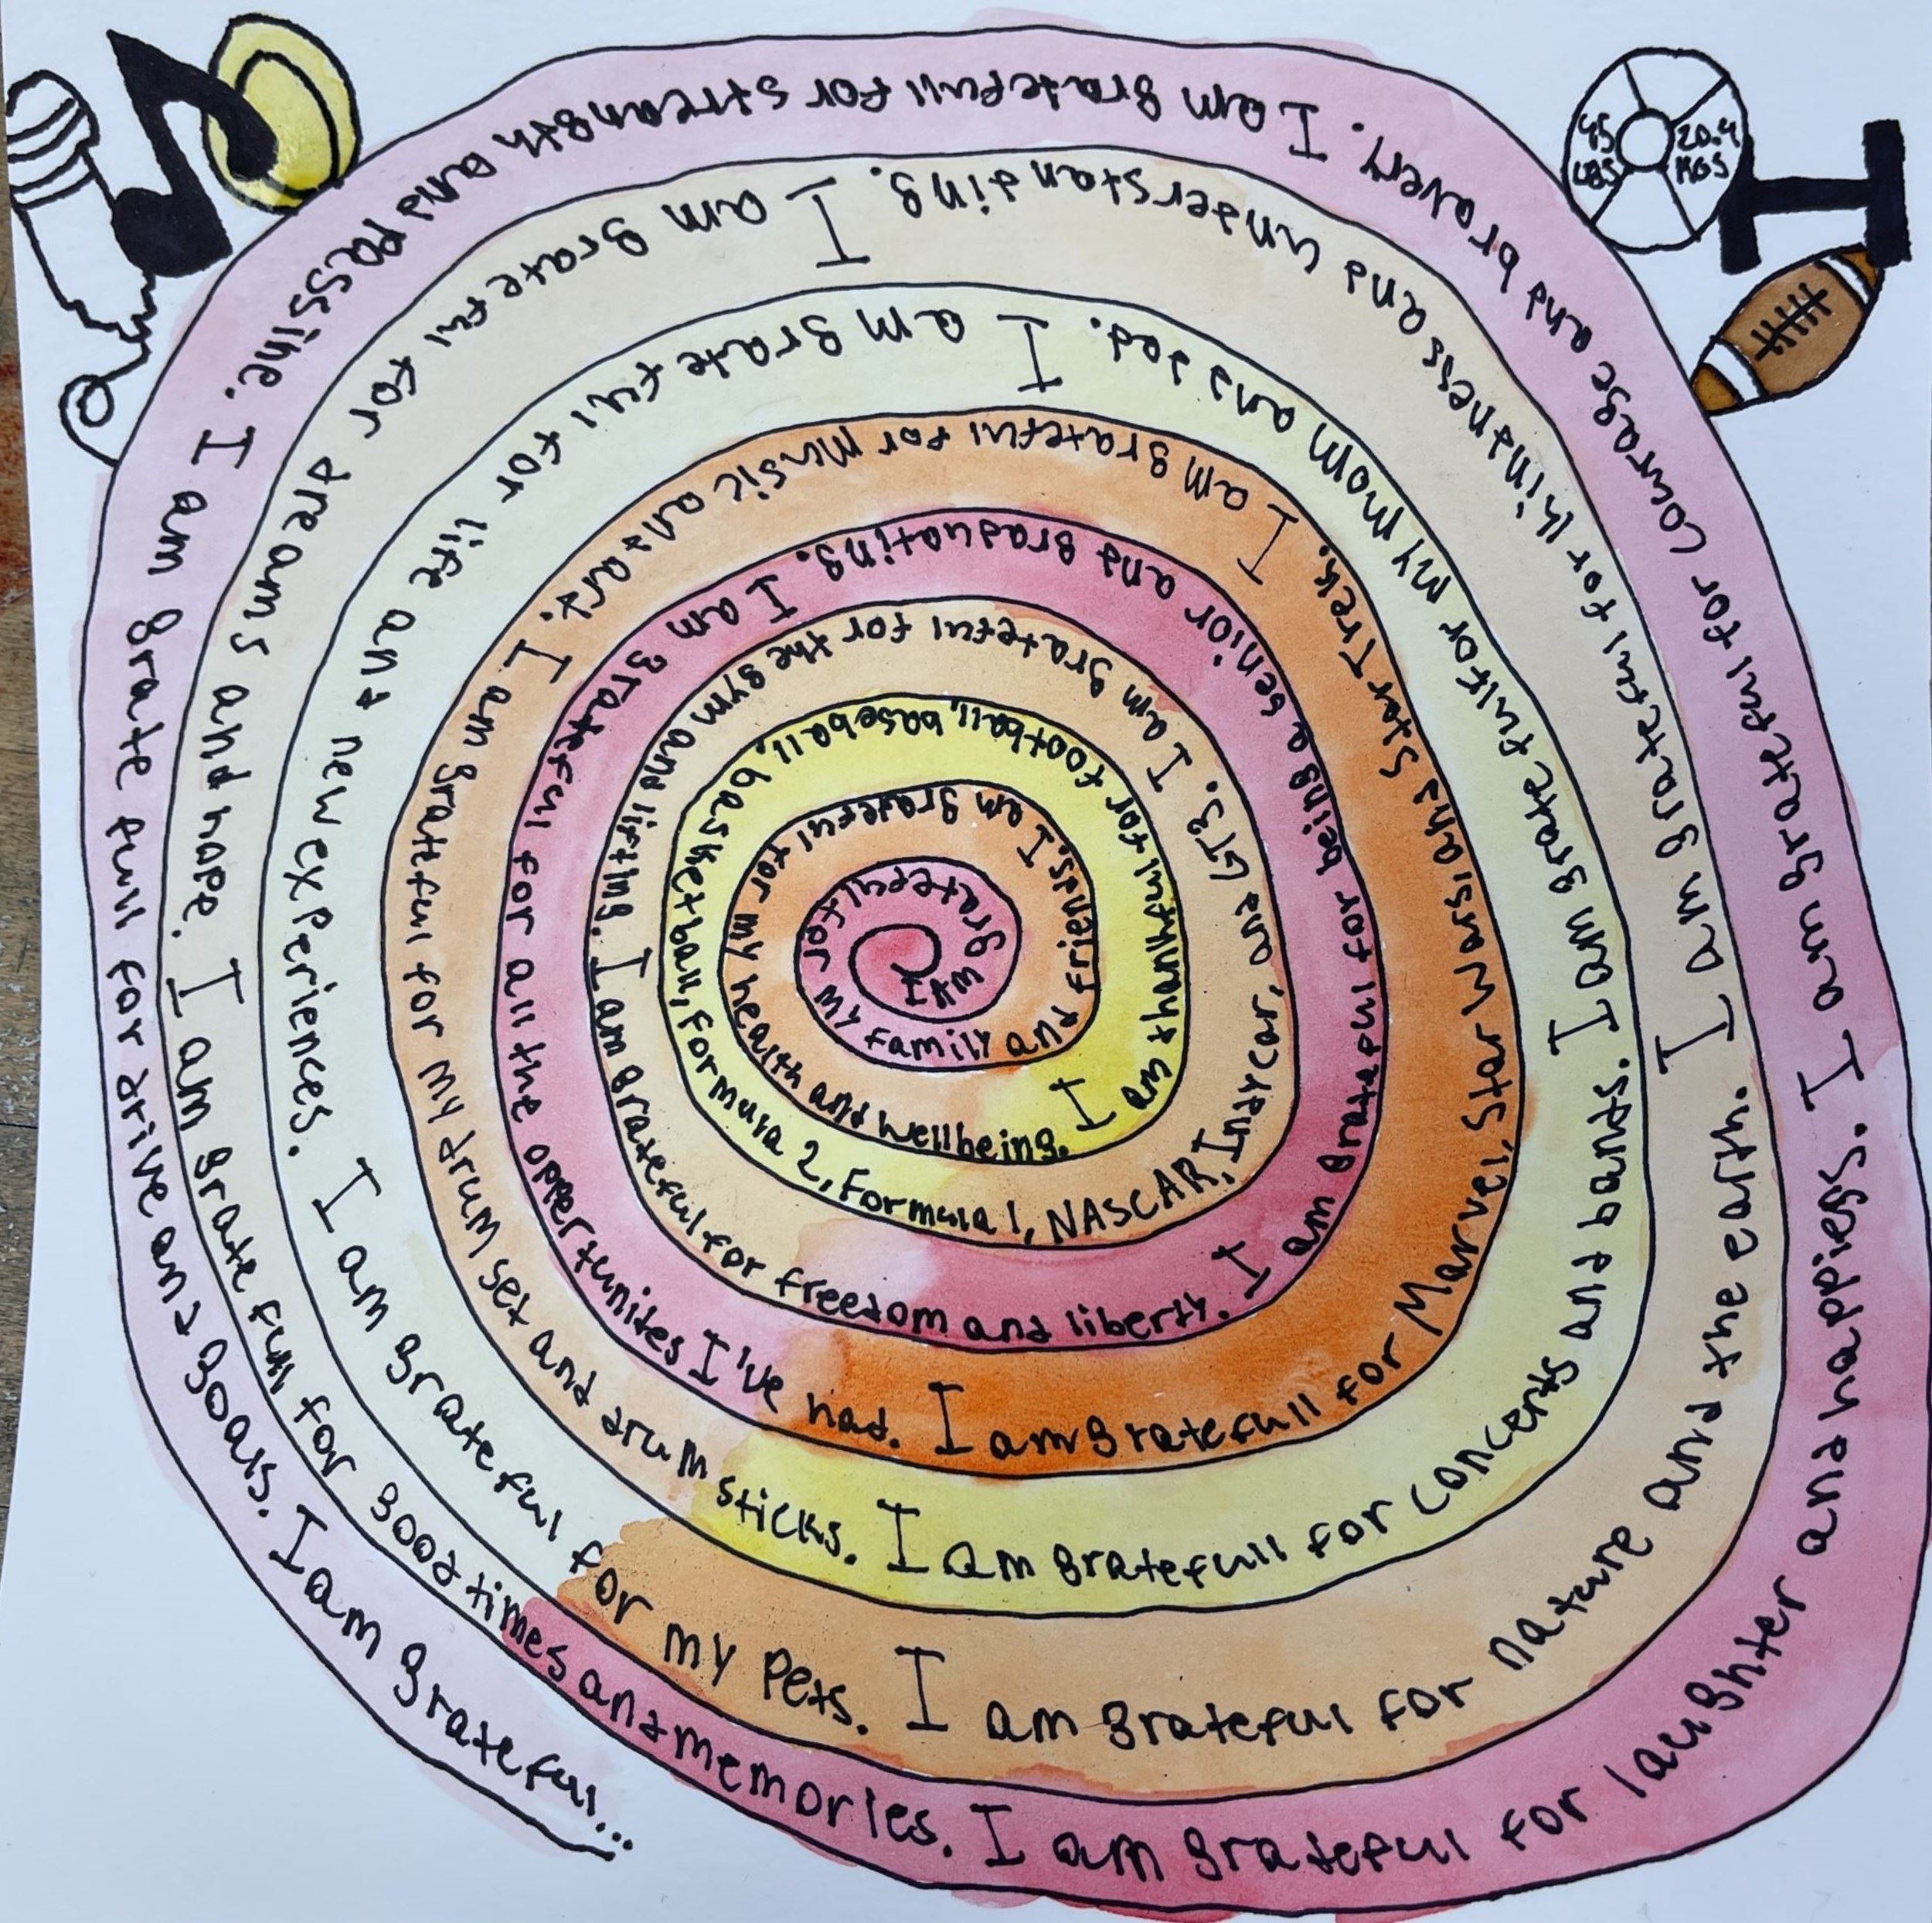 I AM grateful for my family and friends.
I am grateful for my health and wellbeing.
I am thankful for football, baseball, basketball, formula 2, Formula 1, NASCAR, Indycar, and GT3.
I am grateful for the gym and lifting.
I am grateful for freedom and liberty.
I am grateful for being a senior and graduating.
I am grateful for all the oppertunites I've had.
I am gratefull for Marvel, Star Wars and Star Trek.
I am grateful for music and art.
I am grateful for my drum set and drum sticks.
I am gratefull for concerts and bands.
I am grateful for my mom and dad.
I am gratefull for life and new experiences.
I am grateful for my pets.
I am grateful for nature and the earth.
I am grateful for kindness and understanding.
I am grateful for dreams and hope.
I am gratefull for good times and memories.
I am grateful for laughter and happies.
I am grateful for courage and bravery.
I am gratefull for streangth and passine.
I am gratefull for drive and goals.
I am grateful...
45 LBS
20.4 KGS